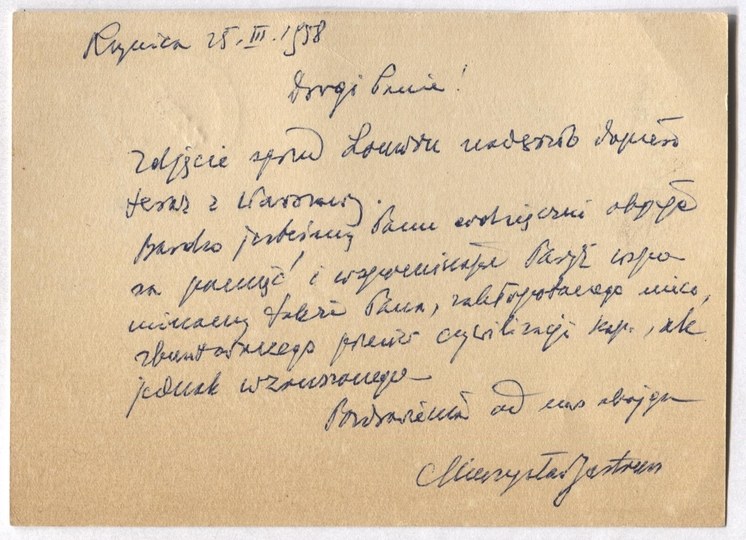 Krynica 25. III. 1958
Drogi Panie!
Zdjęcie sprzed Louvru nadeszło dopiero
teraz z Warszawy.
Bardzo jesteśmy Panu wdzięczni oboje
za pamięć i wspominając Paryż wspo
minamy także Pana, zakłopotanego nieco,
zbuntowanego przeciw cywilizacji kap., ale
jednak wzruszonego
Pozdrowienia od nas obojga
Mieczysław Jastrun